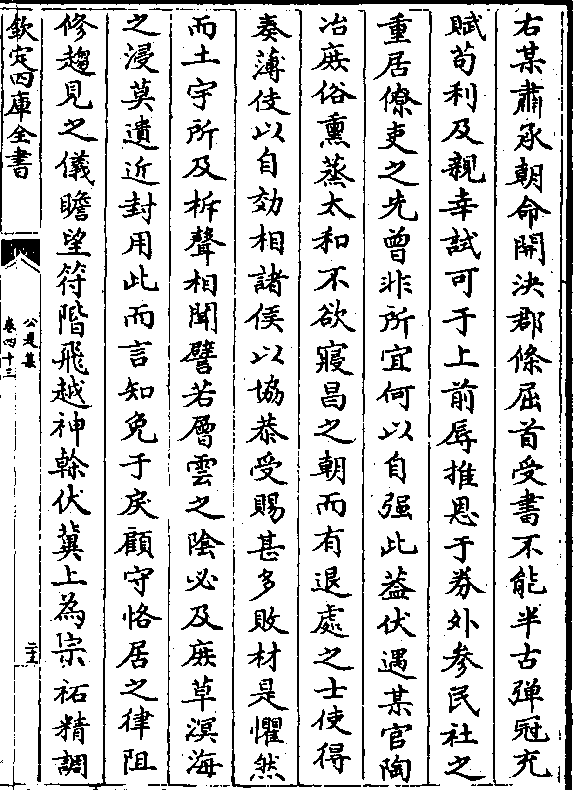 右某肅承朝命開決郡條屈首受書不能半古弹冠充
賦苟利及親幸試可于上前辱推恩于券外參民社之
重居僚吏之先曾非所宜何以自强此葢伏遇某官陶
冶庶俗熏蒸太和不欲寢昌之朝而有退處之士使得
奏薄伎以自効相諸侯以協恭受賜甚多敗材是懼然
而土宇所及柝聲相聞譬若層雲之陰必及庶草溟海
之浸莫遺近封用此而言知免于戾顧守恪居之律阻
修趨見之儀瞻望符階飛越神榦伏冀上為宗祏精調
欽定四庫全書
公是集
卷四十三
二十五